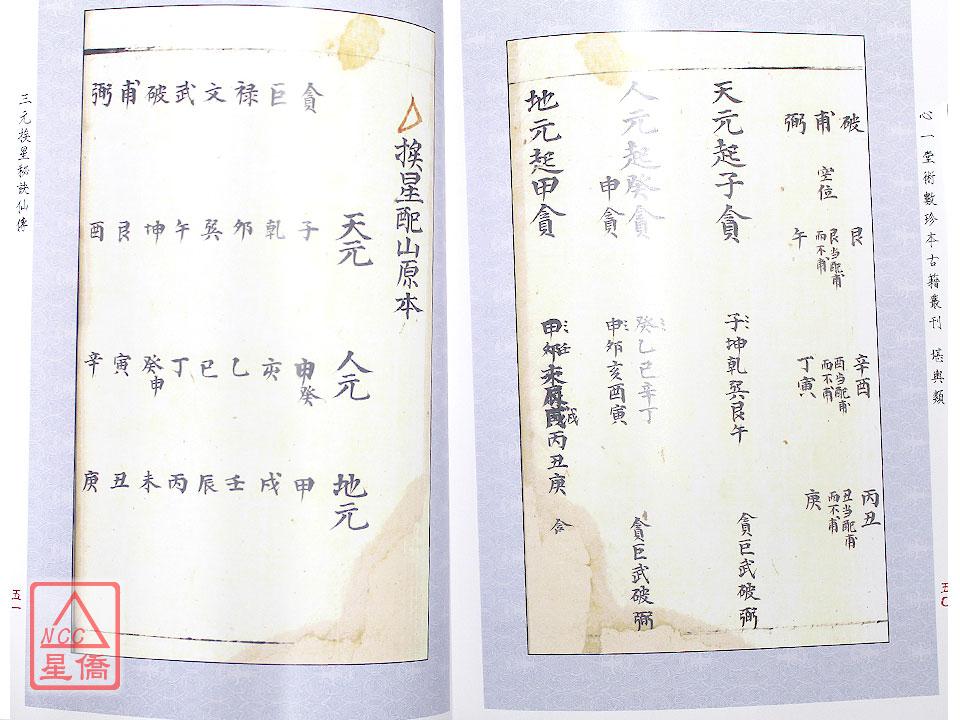 心一堂術數珍本古籍叢刊 堪輿類
破
甫
弼
空位
艮
艮当配甫
而不甫
午
辛酉
酉当配甫
而不甫
丁寅
丙丑
丑当配甫
而不甫
庚
天元起子貪
子坤乾巽艮午
貪巨武破弼
人元起癸貪
申貪
癸乙巳辛丁
申卯亥酉寅
貪巨武破弼
地元起甲貪
丙丑庚
仝
五〇
△挨星配山原本
天元
人元
地元
貪 子 申癸 甲
巨 乾 亥 戌
禄 卯 乙 壬
文 巽 巳 辰
武 午 丁 丙
破 坤 癸申 未
甫 艮 寅 丑
弼 酉 辛 庚
三元挨星秘訣仙傳
五一
NCC
星僑